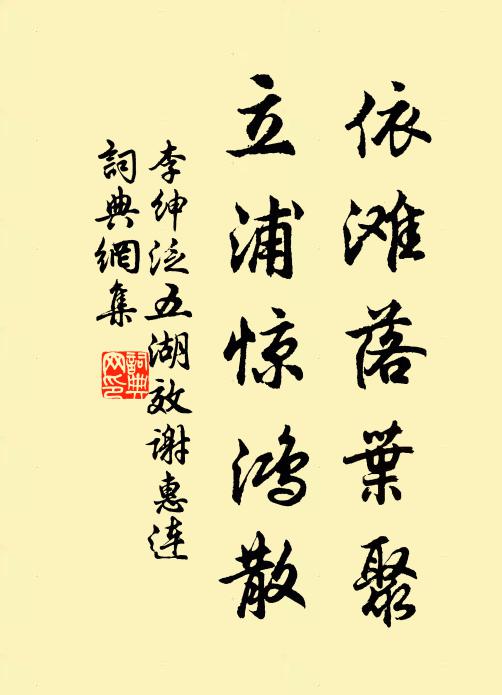 依滩落葉聚
立浦惊鸿散
李绅泛五湖效谢惠连
詞典網集
詞典网印